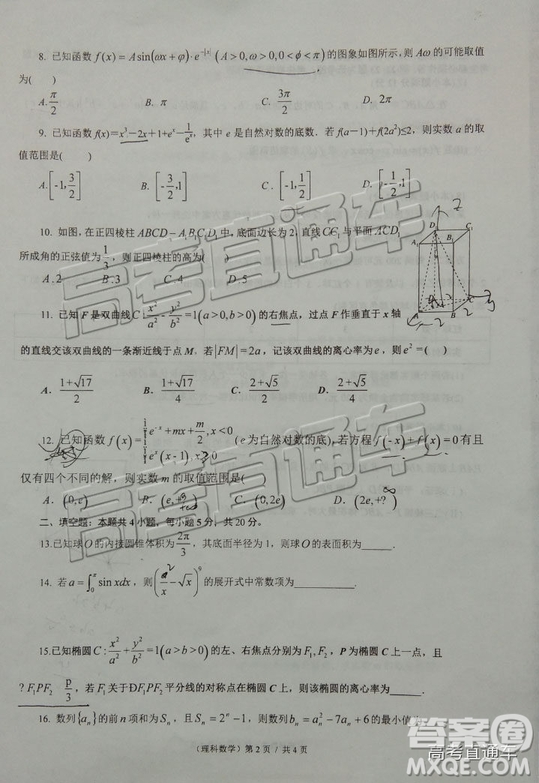 8. 已知函数 f(x) = A sin(ωx+φ)·e^{-|x|} (A>0,ω>0,0<φ<π) 的图象如图所示, 则 Aω 的可能取值
为( )
A. π/2 B. π C. 3π/2 D. 2π
9. 已知函数 f(x)=x³-2x+1+e^x-1/e^x, 其中 e 是自然对数的底数. 若 f(a-1)+f(2a²)≤2, 则实数 a 的取
值范围是( )
A.[-1,3/2] B.[-3/2,1] C.[-1,1/2] D.[-1/2,1]
10. 如图, 在正四棱柱 ABCD-A₁B₁C₁D₁ 中, 底面边长为 2, 直线 CC₁ 与平面 ACD₁
所成角的正弦值为 1/3, 则正四棱柱的高为( )
A.2 B.3 C.4 D.5
11. 已知 F 是双曲线 C: x²/a² - y²/b² = 1(a>0,b>0) 的右焦点, 过点 F 作垂直于 x 轴
的直线交该双曲线的一条渐近线于点 M. 若 |FM|=2a, 记该双曲线的离心率为 e, 则 e²=( )
A. (1+√17)/2 B. (1+√17)/4 C. (2+√5)/2 D. (2+√5)/4
12. 已知函数 f(x)= e^{-x}+mx+m/2, x<0
e^x(x-1), x 0 (e 为自然对数的底), 若方程 f(-x)+f(x)=0 有且
仅有四个不同的解, 则实数 m 的取值范围是( )
A. (0,e) B. (e,+ C. (0,2e) D. (2e,+?)
二、填空题: 本题共 4 小题, 每小题 5 分, 共 20 分.
13.已知球 O 的内接圆锥体积为 2π/3, 其底面半径为 1, 则球 O 的表面积为
14. 若 a=∫₀^π sin xdx, 则 (a/x-√x)⁶ 的展开式中常数项为
15.已知椭圆 C: x²/a²+y²/b²=1(a>b>0) 的左、右焦点分别为 F₁,F₂, P 为椭圆 C 上一点, 且
?F₁PF₂ p/3, 若 F₁ 关于 ÐF₁PF₂ 平分线的对称点在椭圆 C 上, 则该椭圆的离心率为
16. 数列{aₙ}的前 n 项和为 Sₙ, 且 Sₙ=2ⁿ-1, 则数列 bₙ=aₙ²-7aₙ+6 的最小值
(理科数学) 第 2 页 / 共 4 页
高考直通车
高考直通车
高考直通车
答案圈
MXQE.COM
高考直通车